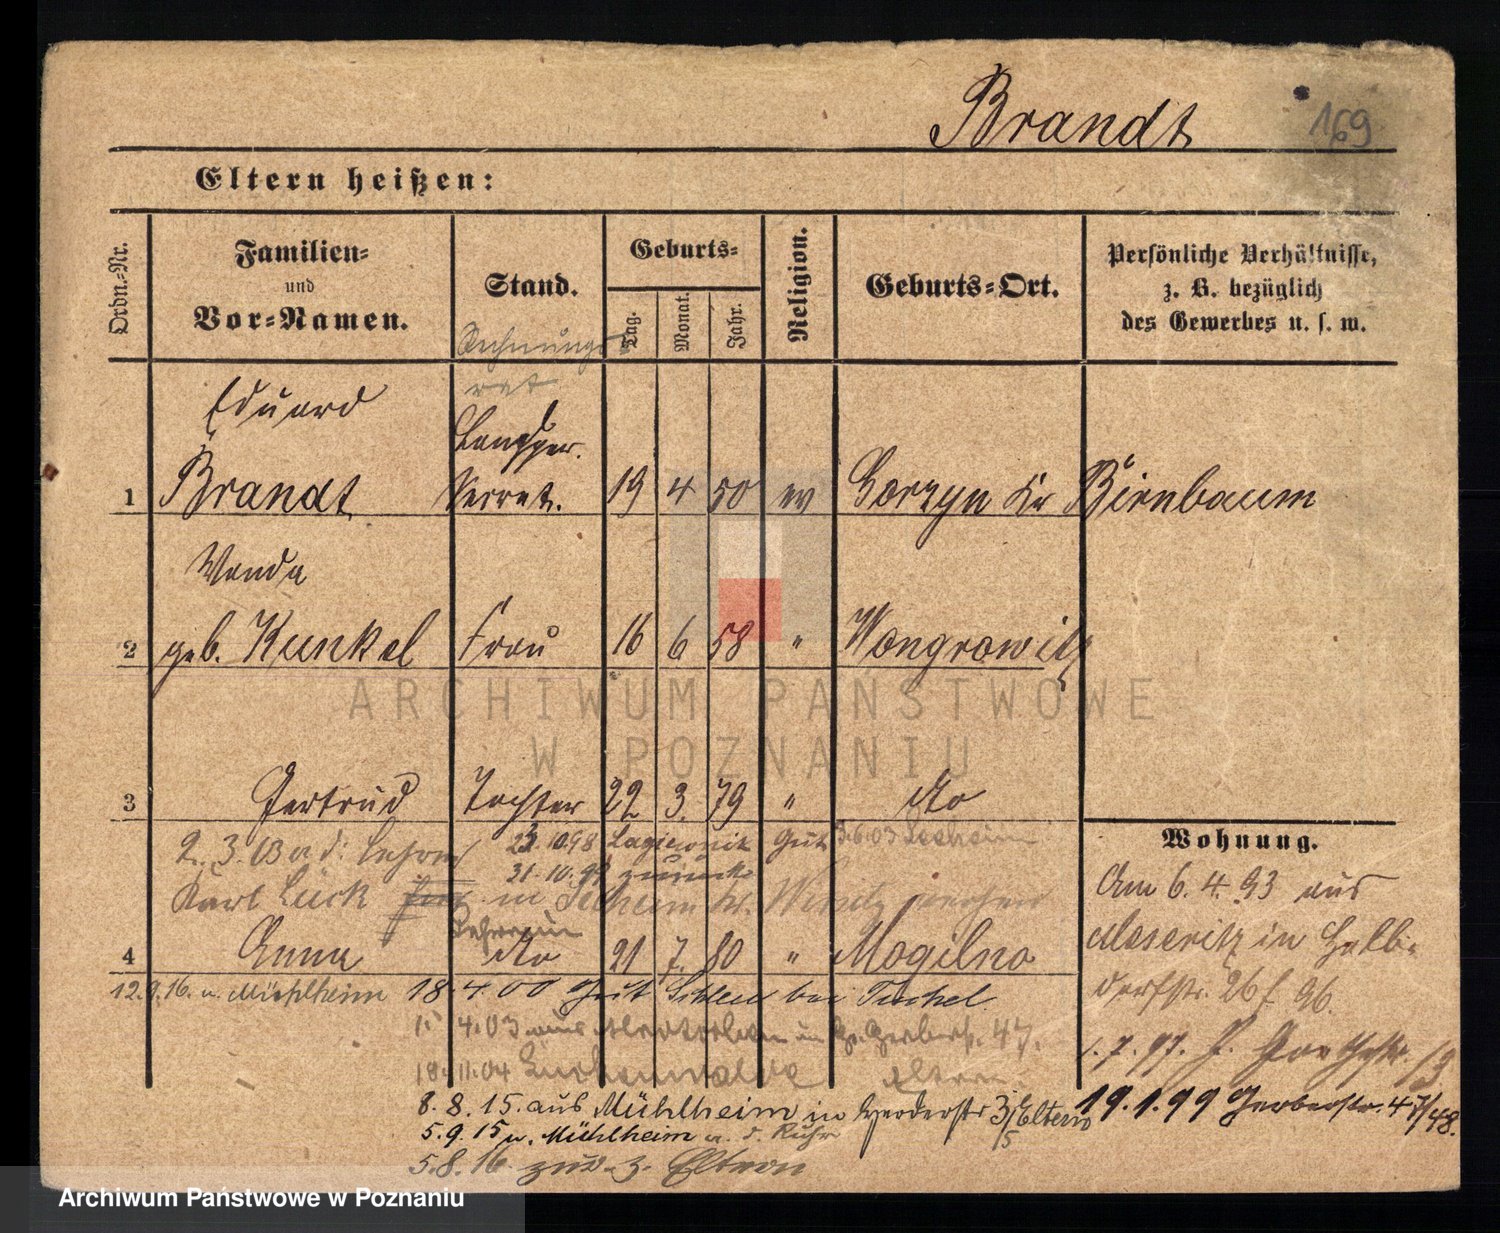 Brandt 169
Eltern heißen:
Ordn.=Nr.
Familien= und Vor=Namen.
Stand.
Geburts=
Tag.
Monat.
Jahr.
Religion.
Geburts=Ort.
Persönliche Verhältnisse,
z. B. bezüglich
des Gewerbes u. s. w.
Rechnungs
rat
Eduard
Landger.
1 Brandt Secret. 19 4 50 ev Gorzyn Kr Birnbaum
Wanda
2 geb. Kunkel Frau 16 6 58 " Wongrowitz
ARCHIWUM PAŃSTWOWE
W POZNANIU
3 Gertrud Tochter 22 3. 79 " dto
Wohnung.
2. 3. 03 a. d. Lehrer 23.10.98 Gut 3.6.03
31.10.98 zurück
Karl Lück in Kr.
Lehrerin
4 Anna dto 21 7. 80 " Mogilno
12.9.16. n. Mühlheim 18.4.00 Gut bei Tuchel
4.03 aus in 47.
18.11.04 Luckenwalde Eltern
8.8.15. aus Mühlheim in Herderstr Eltern
5.9.15 n. Mühlheim a. d. Ruhr
5.8.16. zur. z. Eltern
Am 6.4.93 aus
Meseritz in Halb-
dorfstr. 26 f 96.
1.7.97. Goethestr. 13
19.1.99 Gerberstr. 47/48.
Archiwum Państwowe w Poznaniu